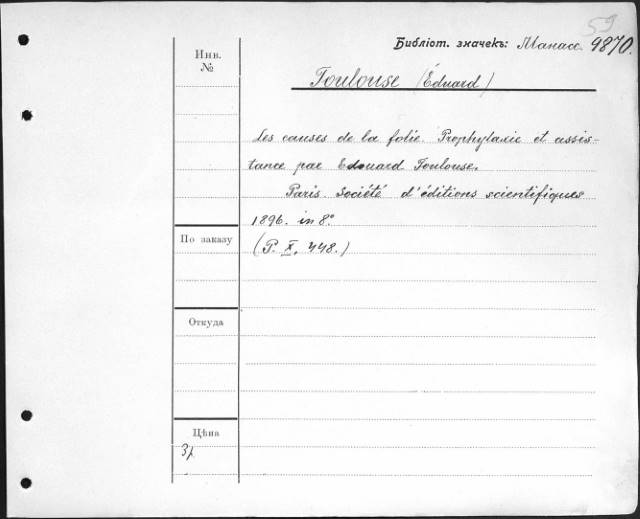 59
Библіот. значекъ: Манасс. 9870.
Инв.
№
Toulouse (Éduard)
Les causes de la folie. Prophylaxie et assis-
tance par Edouard Toulouse.
Paris. Société d'éditions scientifiques
1896. in 8°
(P. X, 448.)
По заказу
Откуда
Цѣна
3р